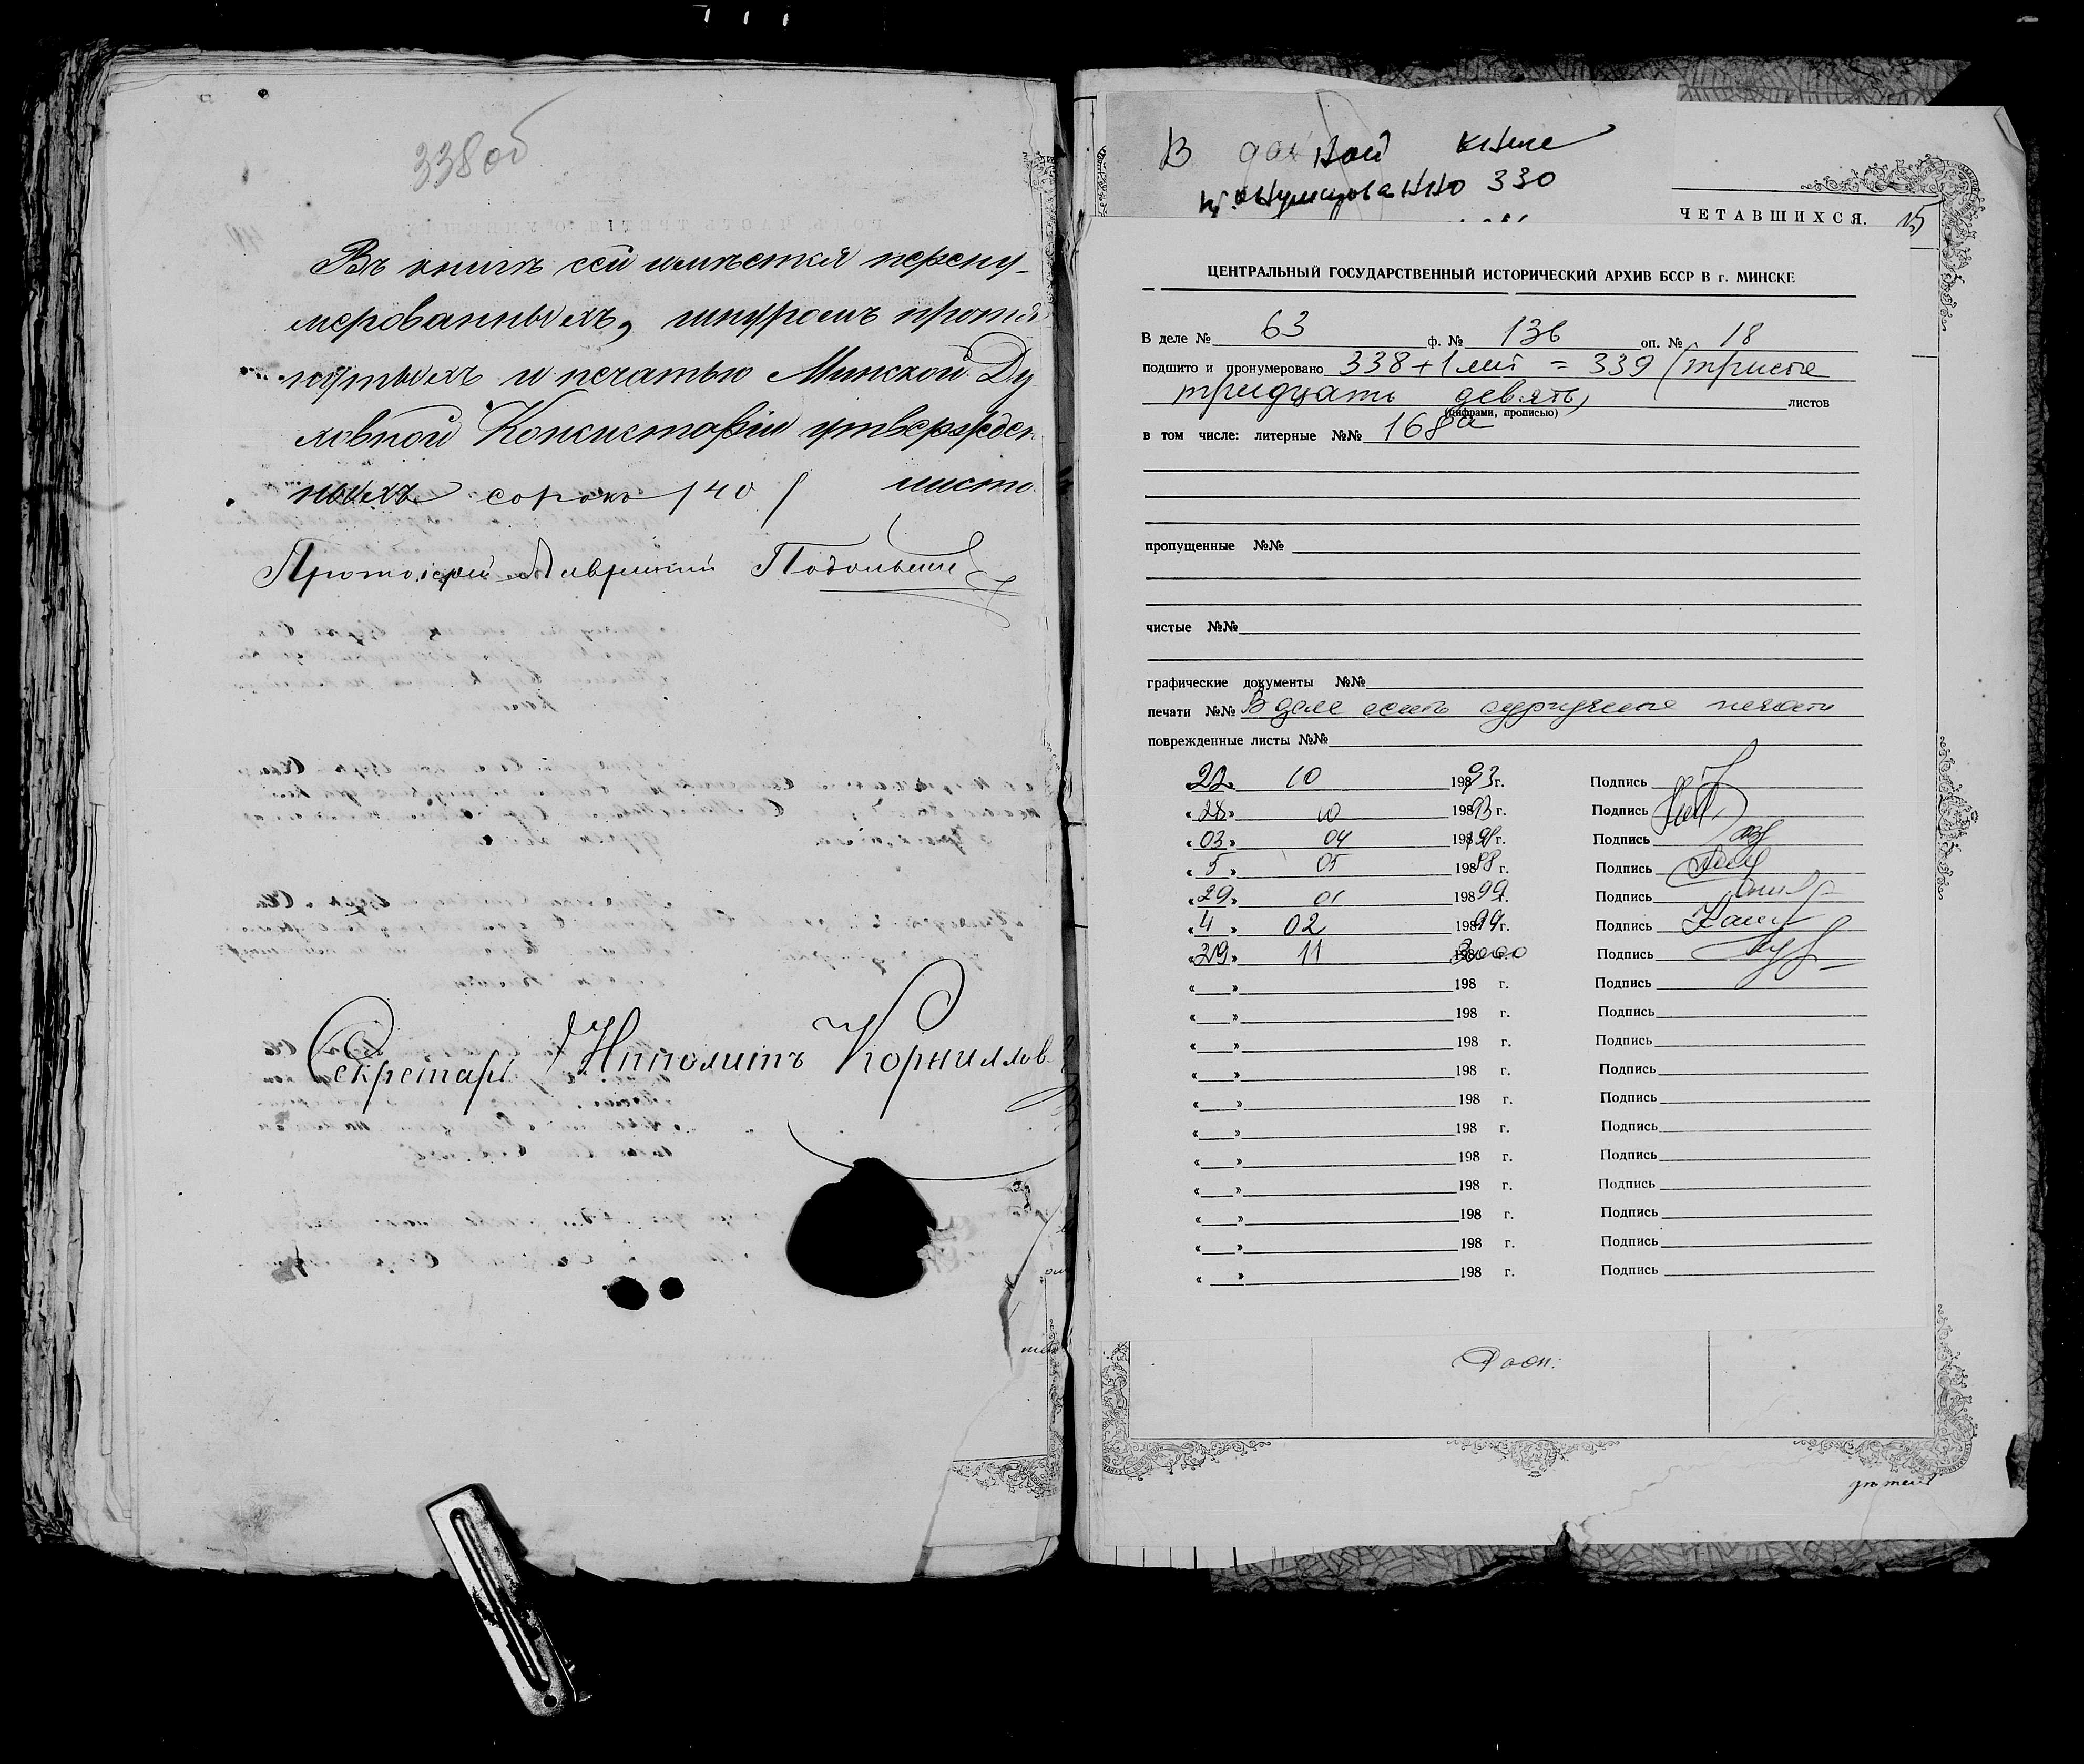 338 об
Въ книгѣ сей имѣется перену-
мерованныхъ, шнуромъ протя
нутыхъ и печатью Минской Ду
ховной Консисторіи утвержден
ныхъ сорокъ /40/ листо
Протоіерей Подольскій
Секретарь Ипполитъ Корниллов
В данной книге
пронумеровано 330
ЧЕТАВШИХСЯ. 15
ЦЕНТРАЛЬНЫЙ ГОСУДАРСТВЕННЫЙ ИСТОРИЧЕСКИЙ АРХИВ БССР В г. МИНСКЕ
В деле № 63 ф. № 136 оп. № 18
подшито и пронумеровано 338+1 лит = 339 (триста
тридцать девять) листов
(цифрами, прописью)
в том числе: литерные №№ 168а
пропущенные №№
чистые №№
графические документы №№
печати №№ В деле есть сургучные печати
поврежденные листы №№
22 10 1993 г. Подпись
«28» 10 1993 г. Подпись
«03» 04 198 г. Подпись
«5» 05 198 г. Подпись
«29» 01 1999 г. Подпись
«4» 02 1999 г. Подпись
«29» 11 2000 Подпись
« » 198 г. Подпись
« » 198 г. Подпись
« » 198 г. Подпись
« » 198 г. Подпись
« » 198 г. Подпись
« » 198 г. Подпись
« » 198 г. Подпись
« » 198 г. Подпись
« » 198 г. Подпись
« » 198 г. Подпись
« » 198 г. Подпись